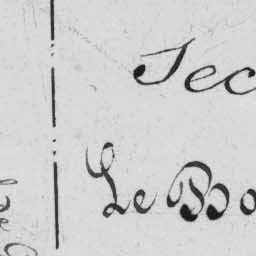 Sec
Le Bo